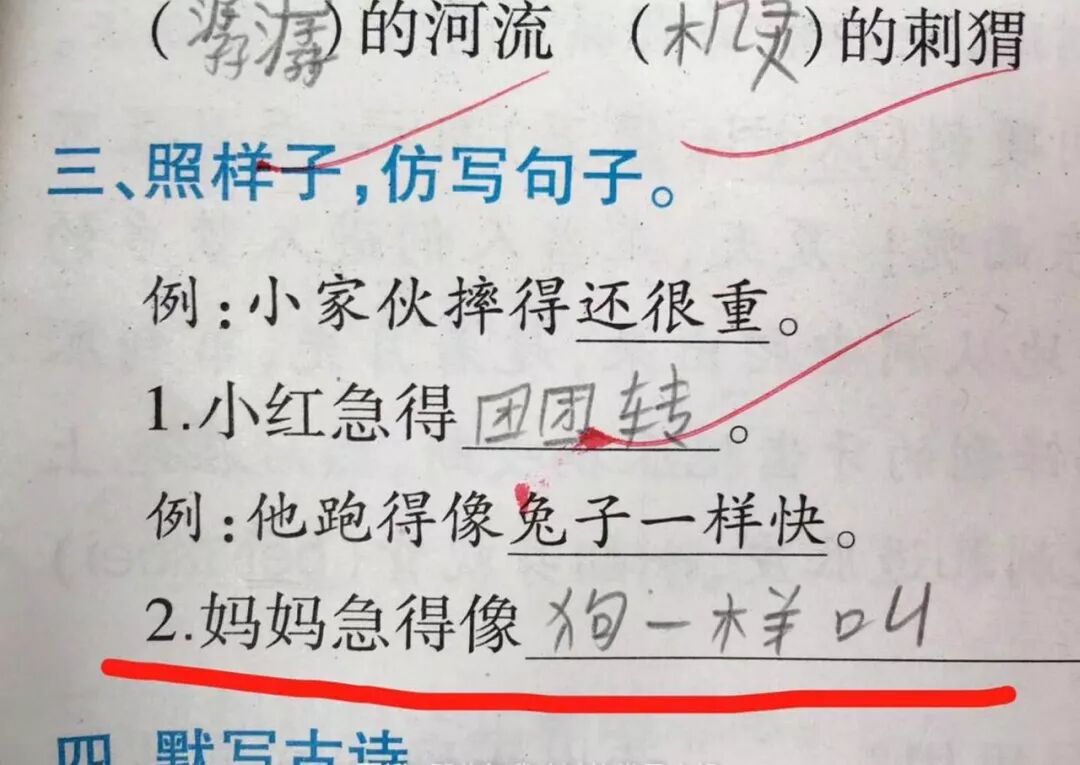 (潺潺)的河流 (机灵)的刺猬
三、照样子,仿写句子。
例:小家伙摔得还很重。
1.小红急得团团转。
例:他跑得像兔子一样快。
2.妈妈急得像狗一样叫
四、默写古诗